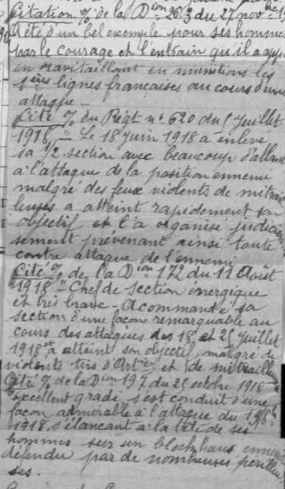 Citation % de la Dion n° 3 du 27 nov
A été d'un bel exemple pour ses hommes
par le courage et l'entrain qu'il a
en ravitaillant en munitions les
1ères lignes françaises au cours d'une
attaque -
Cité % du Régt n° 620 du 1er Juillet
1918 " Le 18 juin 1918 a enlevé
sa ½ section avec beaucoup d'allant
à l'attaque de la position ennemie
malgré des feux violents de mitrail
leuses a atteint rapidement son
objectif et l'a organisé judicieu
sement prévenant ainsi toute
contre attaque de l'ennemi
Cité % de la Dion 172 du 11 Août
1918 " Chef de section énergique
et très brave - A commandé sa
section d'une façon remarquable au
cours des attaques des 18 et 25 juillet
1918 a atteint son objectif malgré de
violents tirs d'Artie et de mitrailleuses
Cité % de la Dion 197 du 25 octobre 1918
Excellent gradé, s'est conduit d'une
façon admirable à l'attaque du
1918 s'élançant à la tête de ses
hommes sur un blockhaus ennemi
défendu par de nombreuses
ses.